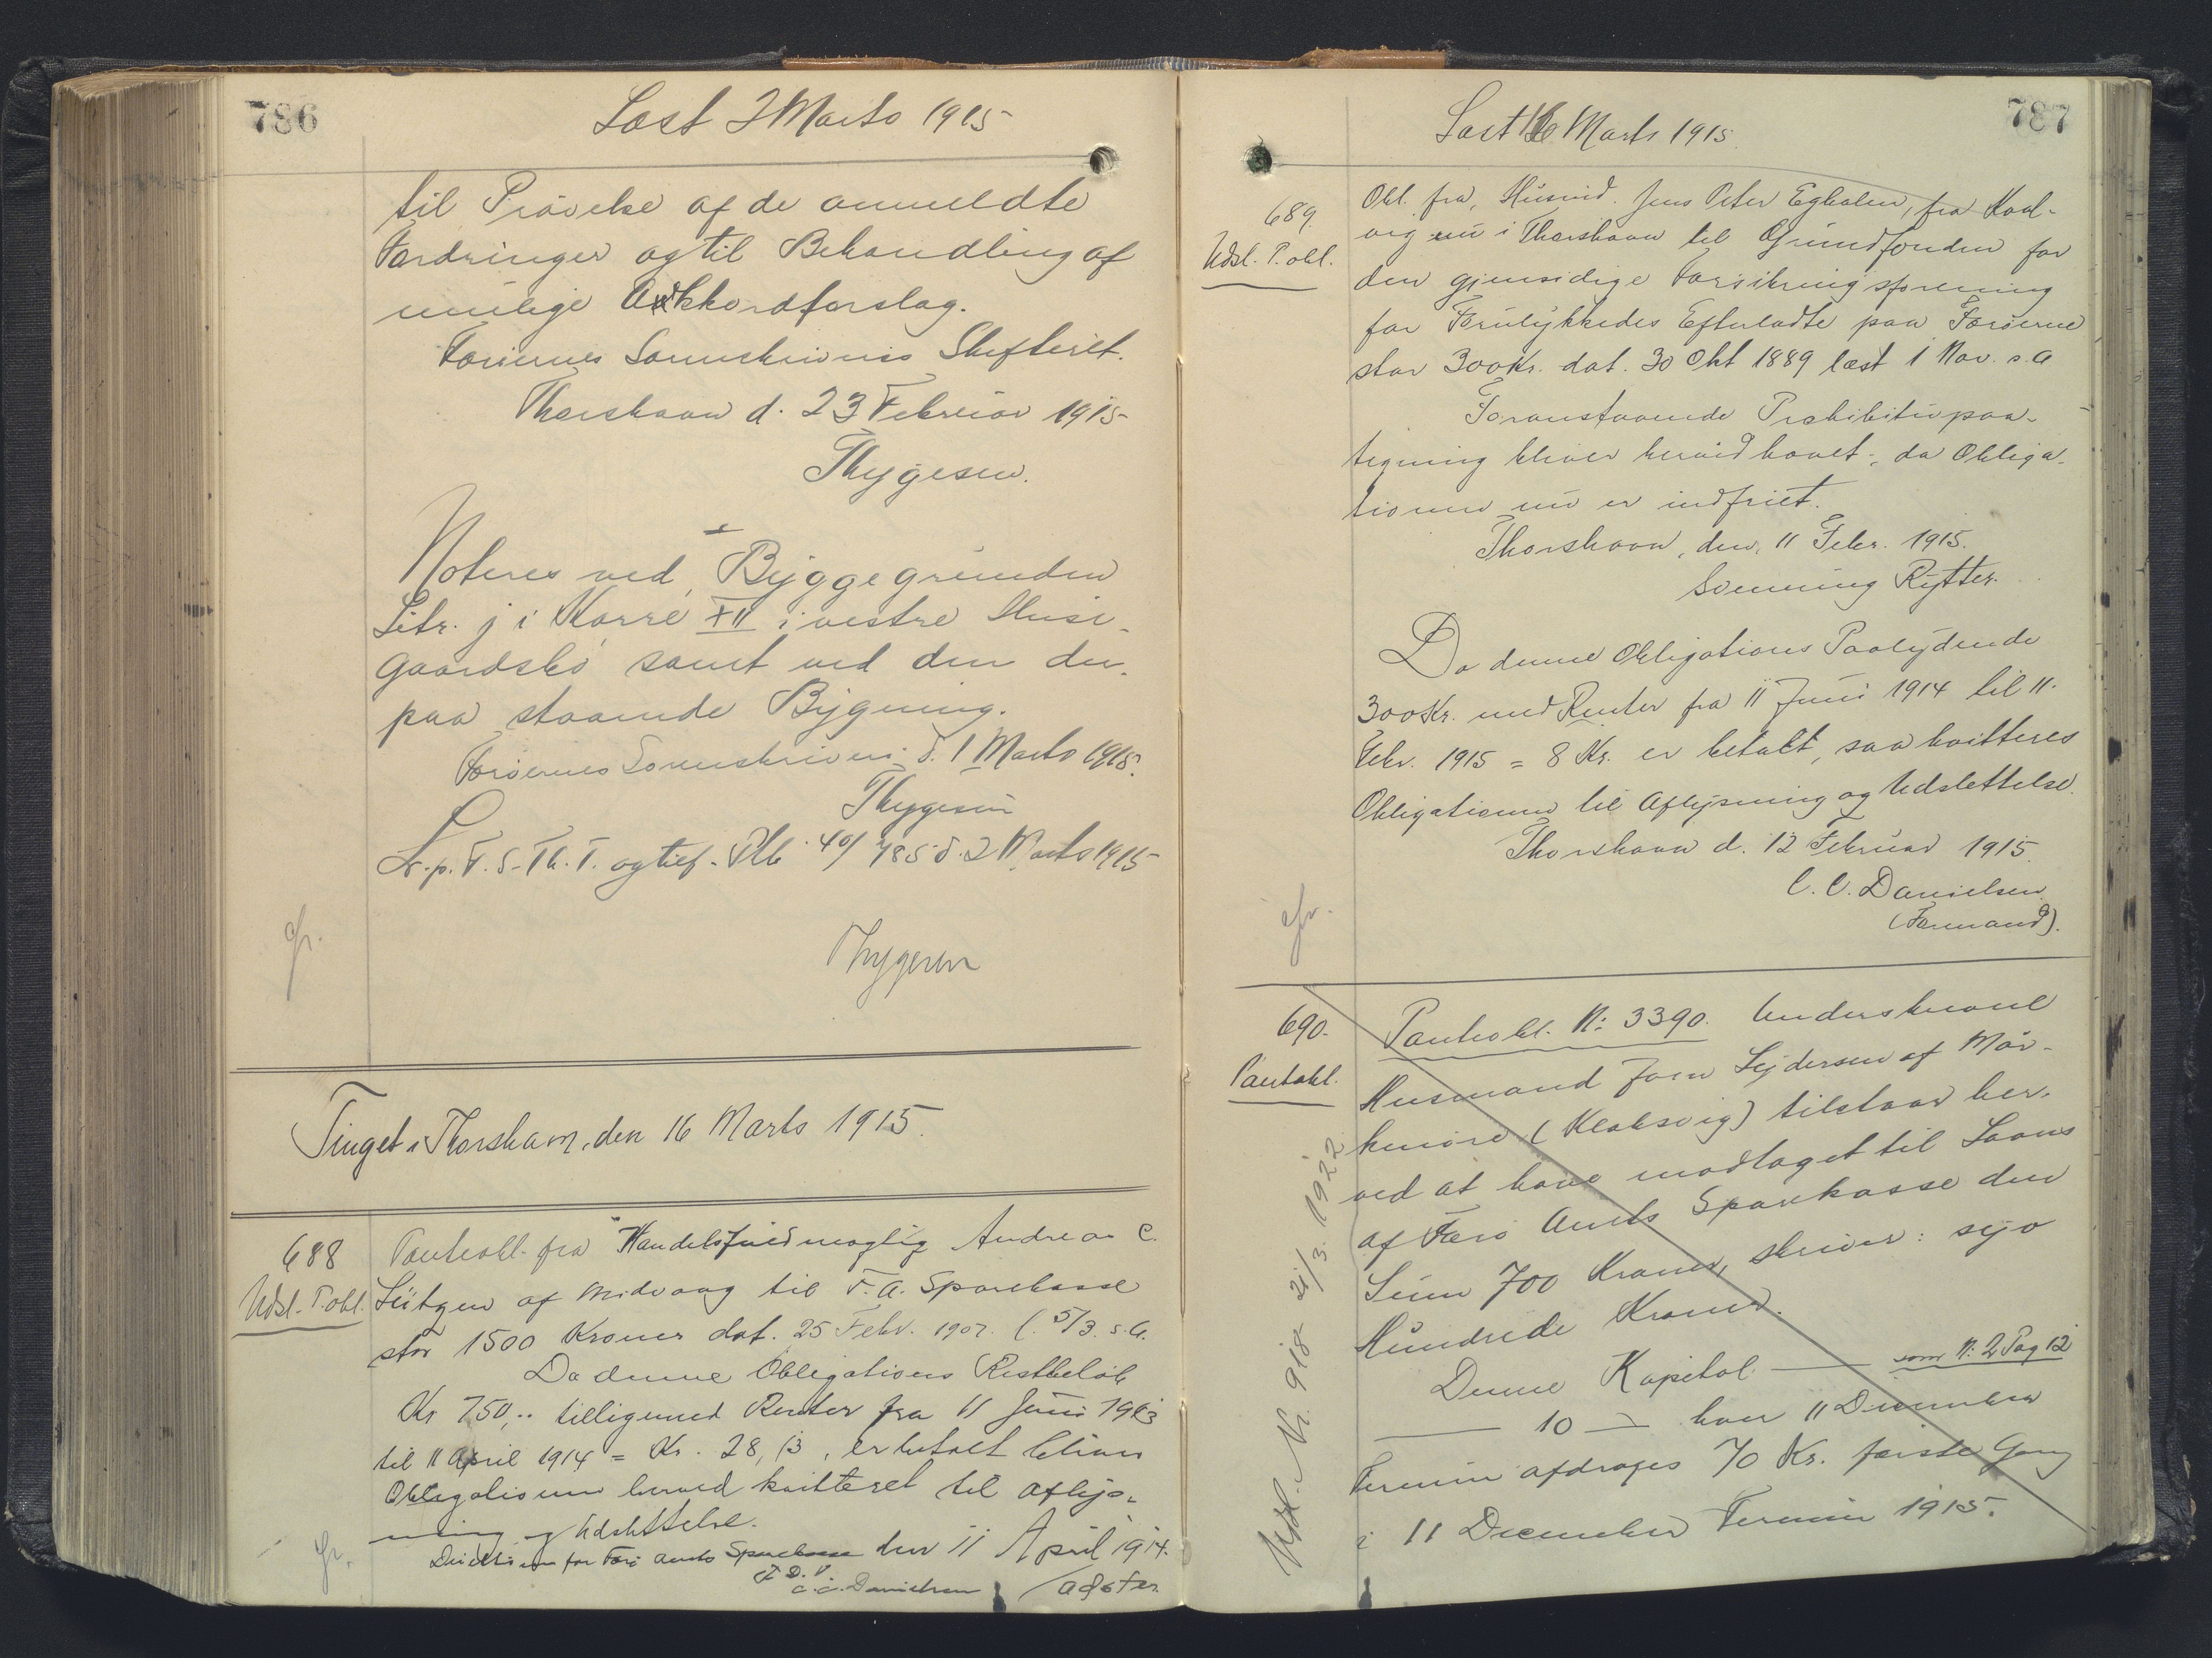 786
Læst 2 Marts 1915
til Prøvelse af de anmeldte
Fordringer og til Behandling af
mulige Akkordforslag.
Færøernes Sorenskriveris Skifteret.
Thorshavn d. 23 Februar 1915
Thygesen.
Noteres ved Byggegrunden
Litr. j i Karré XII i vestre
gaardsbø samt ved den der-
paa staaende Bygning.
Færøernes Sorenskriveri d. 1 Marts 1915.
Thygesen
L. p. F. S. Th. T. og tilf. Plb 40/785 d. 2 Marts 1915
Thygesen
Tinget i Thorshavn, den 16 Marts 1915.
688
Udsl. P. obl.
Pantobl. fra Handelsfuldmægtig Andreas C.
Lützen af Midvaag til F. A. Sparekasse
stor 1500 Kroner dat. 25 Febr. 1907. (. 5/3. s. A.
Da denne Obligations Restbeløb
Kr 750,.. tilligemed Renter fra 11 Juni 1913
til 11 April 1914 = Kr. 28,13, er betalt bliver
Obligationen herved kvitteret til Aflys-
ning og Udslettelse.
Direktionen for Færø Amts Sparekasse den 11 April 1914.
C. C. Danielsen
787
Læst 16 Marts 1915
689.
Udsl. P. obl.
Obl. fra, Husmd. Jens Peter Egholm, fra Kval-
vig nu i Thorshavn til Grundfonden for
den gjensidige Forsikringsforening
for Forulykkedes Efterladte paa Færøerne
stor 300 Kr. dat. 30 Okt 1889 læst 1 Nov. s. A
Foranstaaende Prohibitivpaa-
tegning bliver hervid hævet, da Obliga-
tionen nu er indfriet.
Thorshavn, den, 11 Febr. 1915.
Svenning Rytter.
Da denne Obligations Paalydende
300 Kr. med Renter fra 11 Juni 1914 til 11.
Febr. 1915 = 8 Kr. er betalt, saa kvitteres
Obligationen til Aflysning og Udslettelse.
Thorshavn d. 12 Februar 1915.
C. C. Danielsen
(Formand).
690.
Pantobl.
Pantobl. N: 3390. Underskrevne
Husmand Joen Lejdersen af Mør-
kнøre (Klaksvig) tilstaar her-
ved at have modtaget til Laans
af Færø Amts Sparekasse den
Sum 700 Kroner, skriver: syv
Hundrede Kroner.
Denne Kapital — som N: 2 Pag 12
— 10 — hver 11 December
Termin afdrages 70 Kr. første Gang
i 11 December Termin 1915.
Udsl. Nr. 918 21/3. 1922